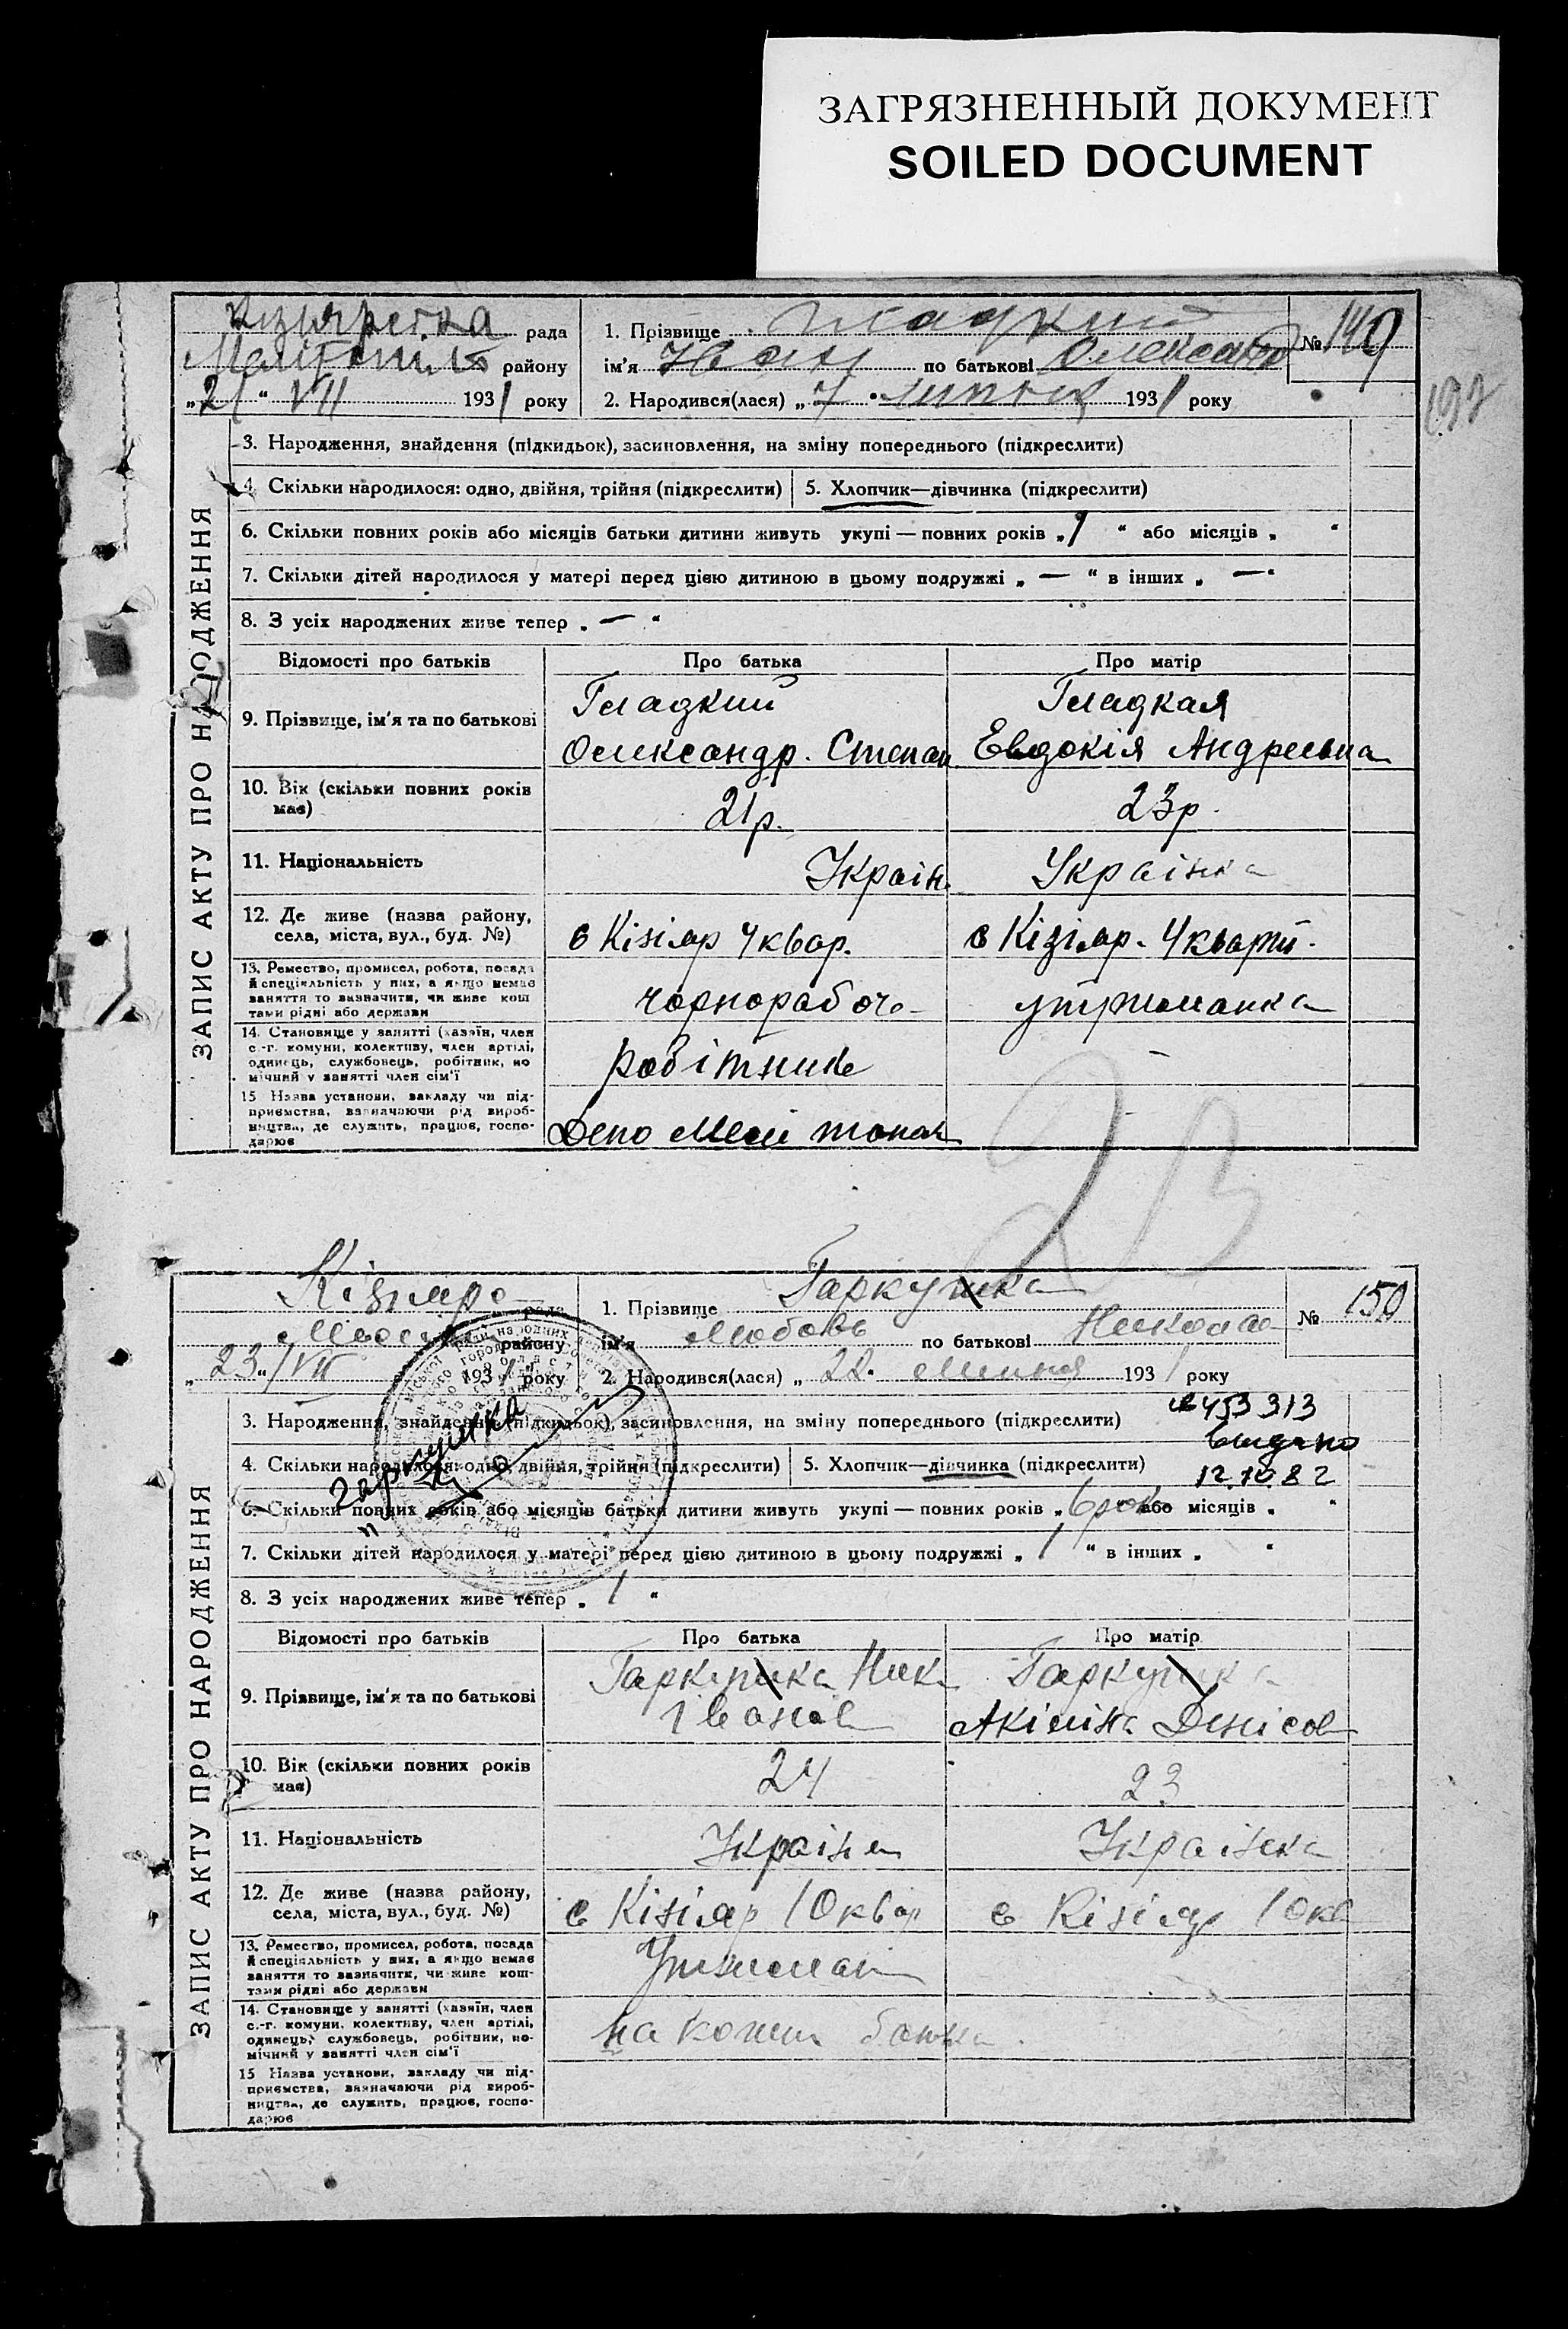 ЗАГРЯЗНЕННЫЙ ДОКУМЕНТ
SOILED DOCUMENT
ЗАПИС АКТУ ПРО НАРОДЖЕННЯ
рада
району
„21“ VII 1931 року
1. Прізвище Гладкий
ім'я Іван по батькові Олександ
№ 149
2. Народився(лася) „7“ липня 1931 року
3. Народження, знайдення (підкидьок), засиновлення, на зміну попереднього (підкреслити)
4. Скільки народилося: одно, двійня, трійня (підкреслити) 5. Хлопчик—дівчинка (підкреслити)
6. Скільки повних років або місяців батьки дитини живуть укупі — повних років „1“ або місяців „ “
7. Скільки дітей народилося у матері перед цією дитиною в цьому подружжі „—“ в інших „—“
8. З усіх народжених живе тепер „—“
Відомості про батьків Про батька Про матір
9. Прізвище, ім'я та по батькові Гладкий Гладкая
Олександр. Степан Евдокія Андреевна
10. Вік (скільки повних років має) 21р. 23р.
11. Національність Україн. Українка
12. Де живе (назва району, села, міста, вул., буд. №) с Кізіляр 4 квар. с Кізіляр. 4 кварт.
13. Ремество, промисел, робота, посада
й спеціяльність у них, а якщо немає
заняття то зазначити, чи живе кош
тами рідні або держави
чорнорабоч утриманка
14. Становище у занятті (хазяїн, член
с.-г. комуни, колективу, член артілі,
одинець, службовець, робітник, по
мічний у занятті член сім'ї
робітник —
15 Назва установи, закладу чи під-
приємства, зазначаючи рід вироб-
ництва, де служить, працює, госпо-
дарює
Депо Мелітопол —
23
ЗАПИС АКТУ ПРО НАРОДЖЕННЯ
рада
району
„23“ VII 1931 року
1. Прізвище Гаркушка
ім'я Любовь по батькові Никола
№ 150
2. Народився(лася) „22. липня 1931 року
3. Народження, знайдення (підкидьок), засиновлення, на зміну попереднього (підкреслити)
453313
видано
4. Скільки народилося: одно, двійня, трійня (підкреслити) 5. Хлопчик—дівчинка (підкреслити)
12.10.82
6. Скільки повних років або місяців батьки дитини живуть укупі — повних років „6 рок“ або місяців „ “
7. Скільки дітей народилося у матері перед цією дитиною в цьому подружжі „1“ в інших „ “
8. З усіх народжених живе тепер „1“
Відомості про батьків Про батька Про матір
9. Прізвище, ім'я та по батькові Гаркушка Ник. Гаркушка
Іванов Акіліна Денісов
10. Вік (скільки повних років має) 24 23
11. Національність Українец Українка
12. Де живе (назва району, села, міста, вул., буд. №) с Кізіляр 10 квар с Кізіляр 10 кв
13. Ремество, промисел, робота, посада
й спеціяльність у них, а якщо немає
заняття то зазначити, чи живе кош-
тами рідні або держави
14. Становище у занятті (хазяїн, член
с.-г. комуни, колективу, член артілі,
одинець, службовець, робітник, по-
мічний у занятті член сім'ї
на кошти батька
15 Назва установи, закладу чи під-
приємства, зазначаючи рід вироб-
ництва, де служить, працює, госпо-
дарює